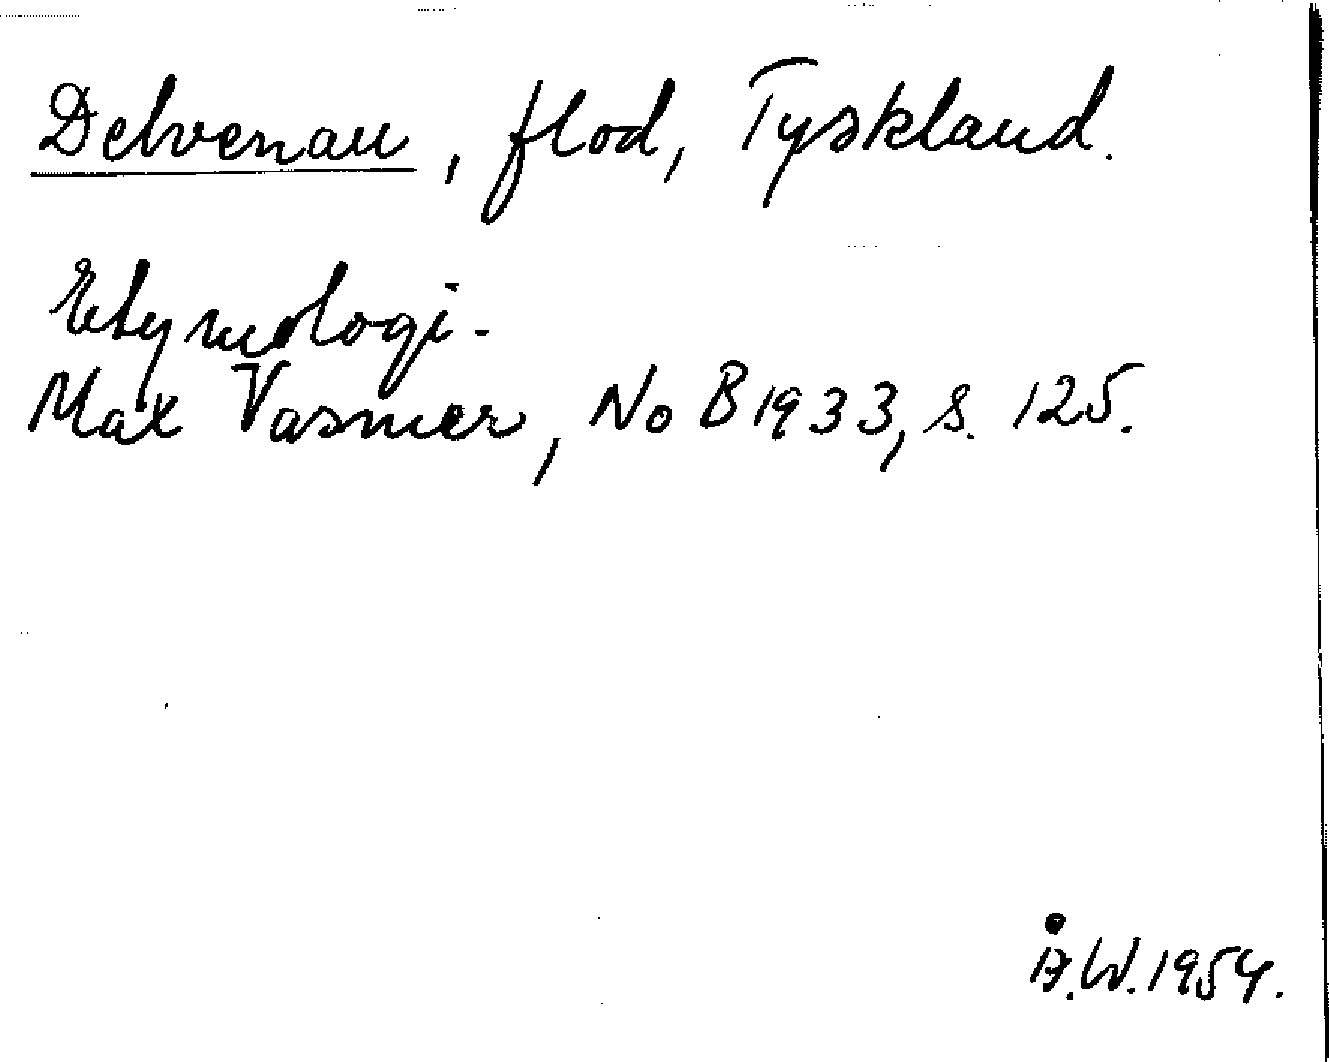 Delvenau, flod, Tyskland.
Etymologi.
Max Vasmer, No B 1933, s. 125.
Å.W. 1954.